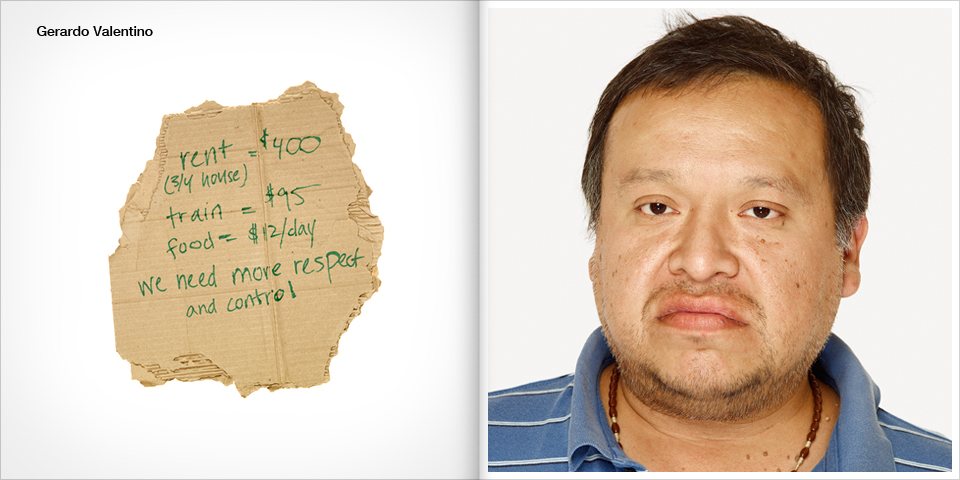 Gerardo Valentino
rent = $400
(3/4 house)
train = $95
food = $12/day
we need more respect
and control